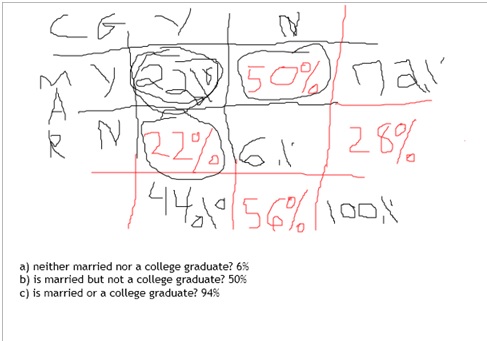 CG Y N
M Y 22% 50% 72%
A
R N 22% 6% 28%
44% 56% 100%
a) neither married nor a college graduate? 6%
b) is married but not a college graduate? 50%
c) is married or a college graduate? 94%